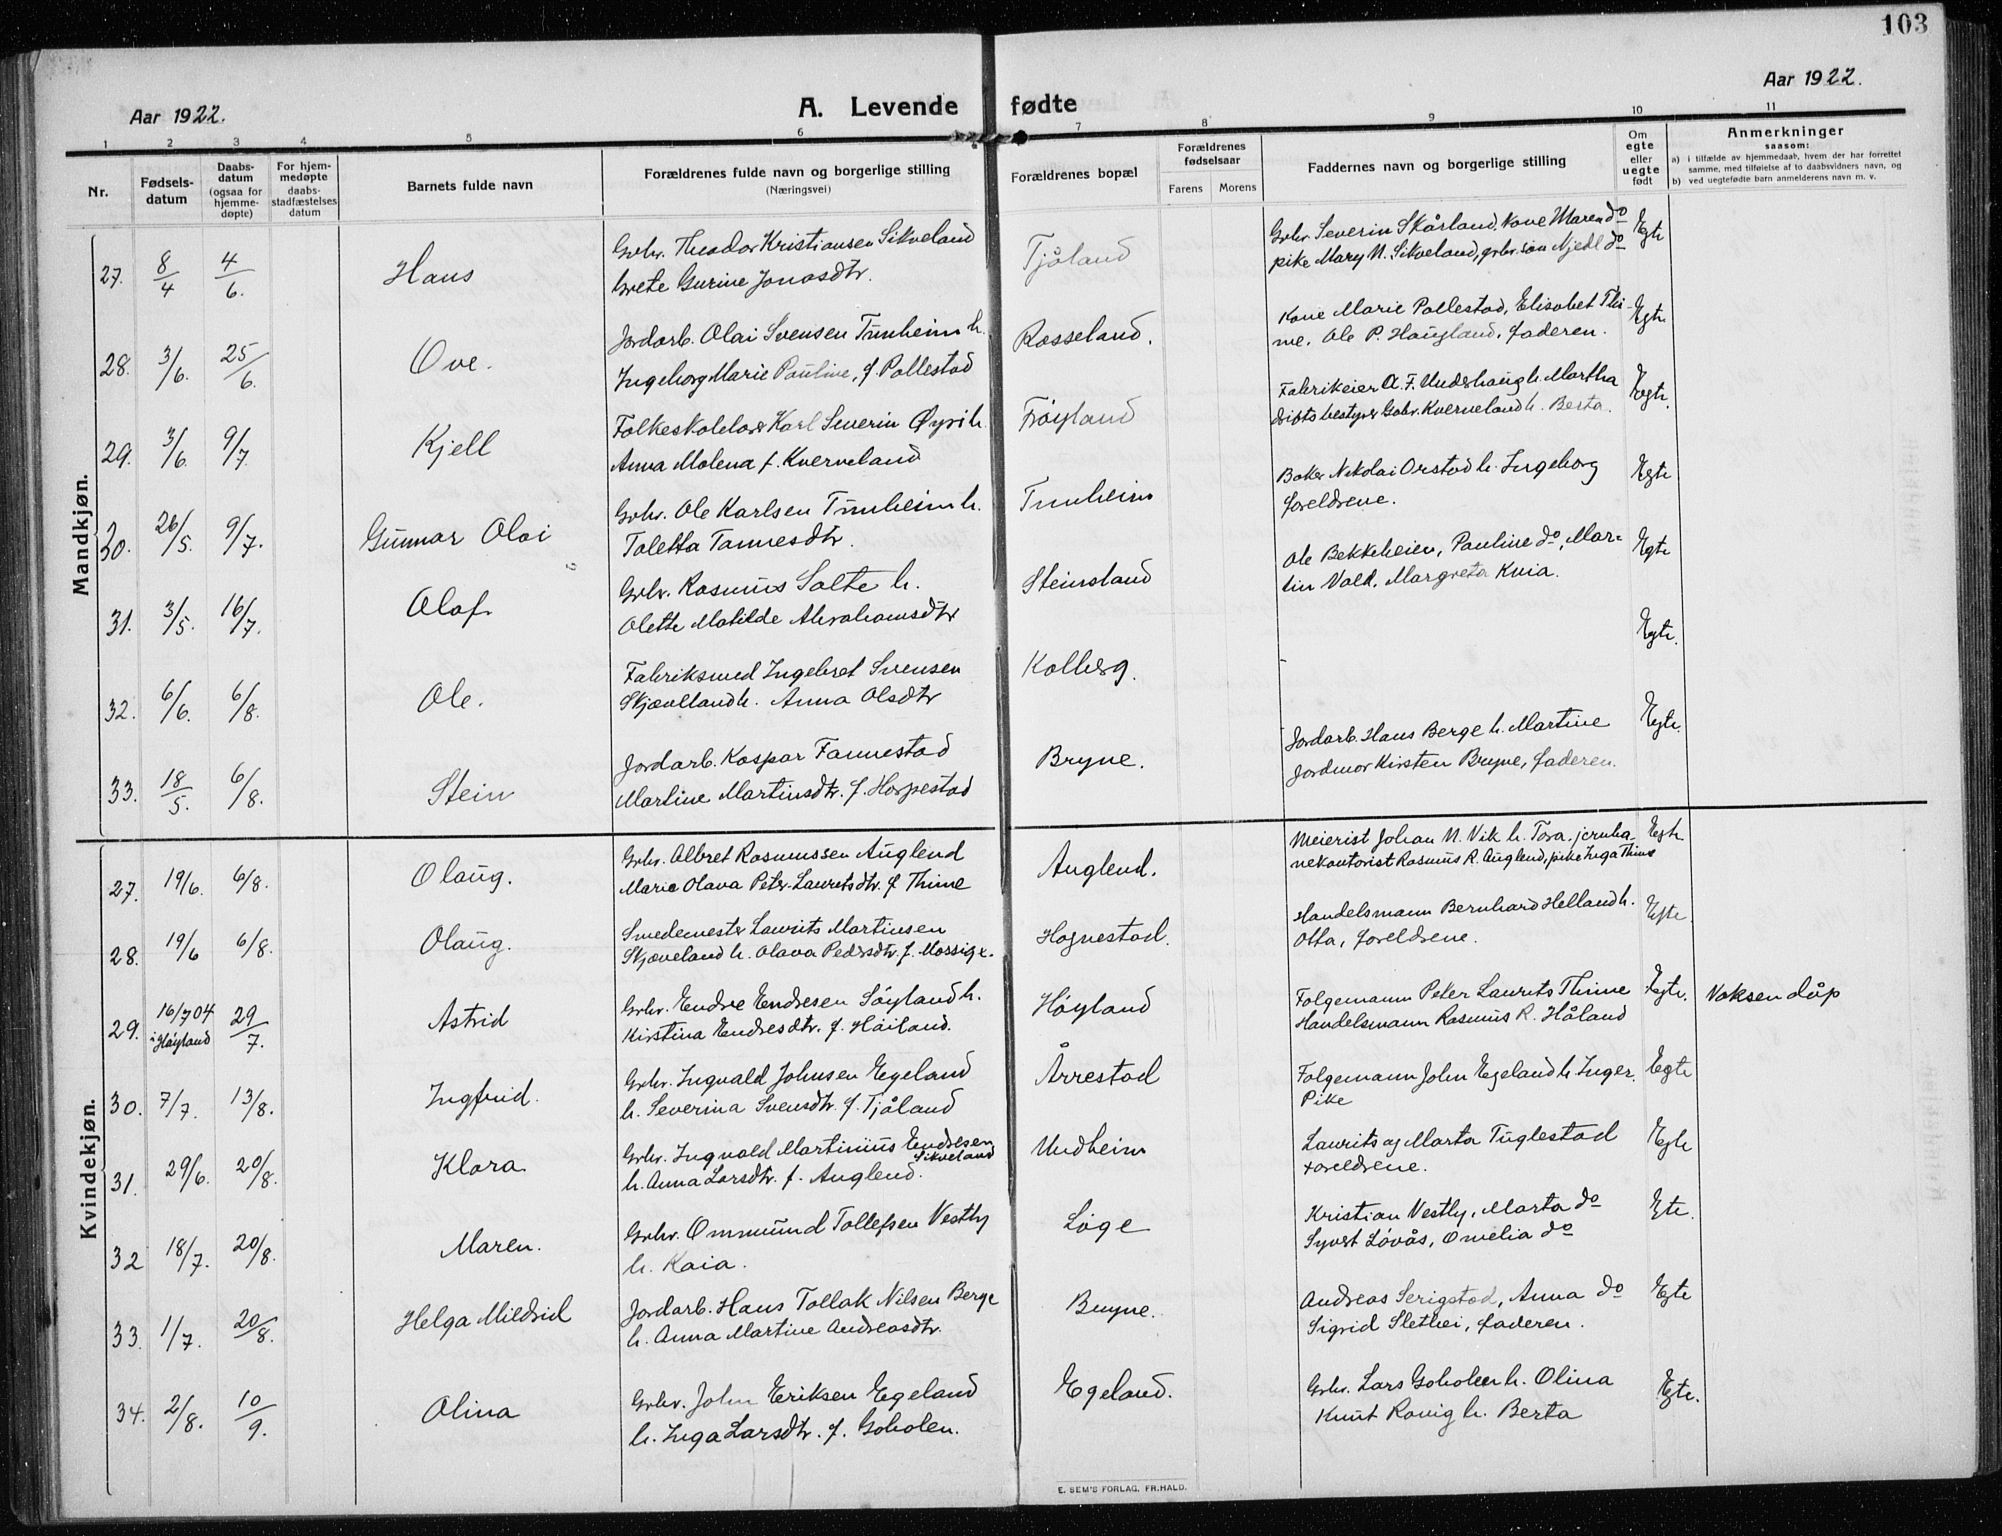 103
Aar 1922.
A. Levende fødte
Aar 1922.
1 2 3 4 5 6 7 8 9 10 11
Nr.
Fødsels-
datum
Daabs-
datum
(ogsaa for
hjemme-
døpte)
For hjem-
medøpte
daabs-
stadfæstelses
datum
Barnets fulde navn
Forældrenes fulde navn og borgerlige stilling
(Næringsvei)
Forældrenes bopæl
Forældrenes
fødselsaar
Farens Morens
Faddernes navn og borgerlige stilling
Om
egte
eller
uegte
født
Anmerkninger
saasom:
a) i tilfælde av hjemmedaab, hvem der har forrettet
samme, med tilføielse af to daabsvidners navn, og
b) ved uegtefødte barn anmelderens navn m. v.
Mandkjøn.
27. 8/4 4/6. Hans
Grbr. Theodor Kristiansen Sikveland
Grete Gurine Jonasdtr.
Tjåland
Grbr. Severin Skårland, Kone Maren do
pike Mary N. Sikveland, grbr. søn Njedl do
Egte
28. 3/6. 25/6. Ove.
Jordarb. Olai Svensen Tunheim h.
Ingeborg Marie Pauline, f. Pollestad
Rosseland.
Kone Marie Pollestad, Elisabet Thi-
me, Ole P. Haugland, faderen.
Egte
29. 3/6. 9/7. Kjell
Folkeskolelær Karl Severin Øyri h.
Anna Malena f. Kverneland
Frøyland
Fabrikeier O. F. Undshaug h. Martha
driftsbestyrer Gabr. Kverneland h. Berta.
Egte.
30. 26/5. 9/7. Gunnar Olai
Grbr. Ole Karlsen Tunheim h.
Taletta Tannesdtr.
Tunheim
Baker Nikolai Orstad h. Ingeborg
foreldrene.
Egte
31. 3/5. 16/7. Olaf.
Grbr. Rasmus Salte h.
Olette Matilde Abrahamsdtr
Steinsland
Ole Bekkeheien, Pauline do, Mar-
tin Vold. Margreta Kvia.
Egte
32. 6/6. 6/8. Ole.
Fabriksmed Ingebret Svensen
Skjævlland h. Anna Olsdtr
Kolberg.
Egte.
33. 18/5. 6/8. Stein
Jordarb. Kaspar Fannestad
Martine Martinsdtr. f. Horpestad
Bryne.
Jordarb. Hans Berge h. Martine
Jordmor Kirsten Bryne, faderen.
Egte.
Kvindekjøn.
27. 19/6. 6/8. Olaug.
Grbr. Albret Rasmussen Auglend
Marie Olava Peter-Lauritsdtr. f Thime
Auglend.
Meierist Johan N. Vik h. Tora, jernba-
nekontorist Rasmus R. Auglend, pike Inga Thime
Egte
28. 19/6 6/8. Olaug.
Smedemester Laurits Martinsen
Skjæveland h. Olava Pedersdtr. f. Mossige.
Hognestad.
Handelsmann Bernhard Helland h.
Otta, foreldrene.
Egte
29. 16/7 04
i Høyland 29/7. Astrid
Grbr. Endre Endresen Søyland h.
Kirstina Endresdtr. f. Høiland.
Høyland
Folgemann Peter Laurits Thime
Handelsmann Rasmus R. Håland
Egte.
Voksen dåp
30. 7/7. 13/8. Ingfrid.
Grbr. Ingvald Johnsen Egeland
h. Severina Svensdtr. f. Tjåland
Årrestad
Folgemann John Egeland h. Inger.
Pike
Egte
31. 29/6. 20/8. Klara
Grbr. Ingvald Martinius Endresen
Sikveland
h. Anna Larsdtr. f. Auglend.
Undheim
Laurits og Marta Tuglestad
foreldrene.
Egte
32 18/7. 20/8. Maren.
Grbr. Ommund Tollefsen Vestly
h. Kaia.
Løge
Kristian Vestly, Marta do
Syvert Løvås, Omelia do
Egte.
33. 1/7. 20/8. Helga Mildrid
Jordarb. Hans Tollak Nilsen Berge
h. Anna Martine Andreasdtr.
Bryne.
Andreas Serigstad, Anna do
Sigrid Slethei, faderen.
Egte
34. 2/8. 10/9. Olina
Grbr. John Eriksen Egeland
h. Inga Larsdtr. f. Goholen.
Egeland.
Grbr. Lars Goholen h. Olina
Knut Ravig h. Berta
Egte.
E. SEM'S FORLAG, FR.HALD.